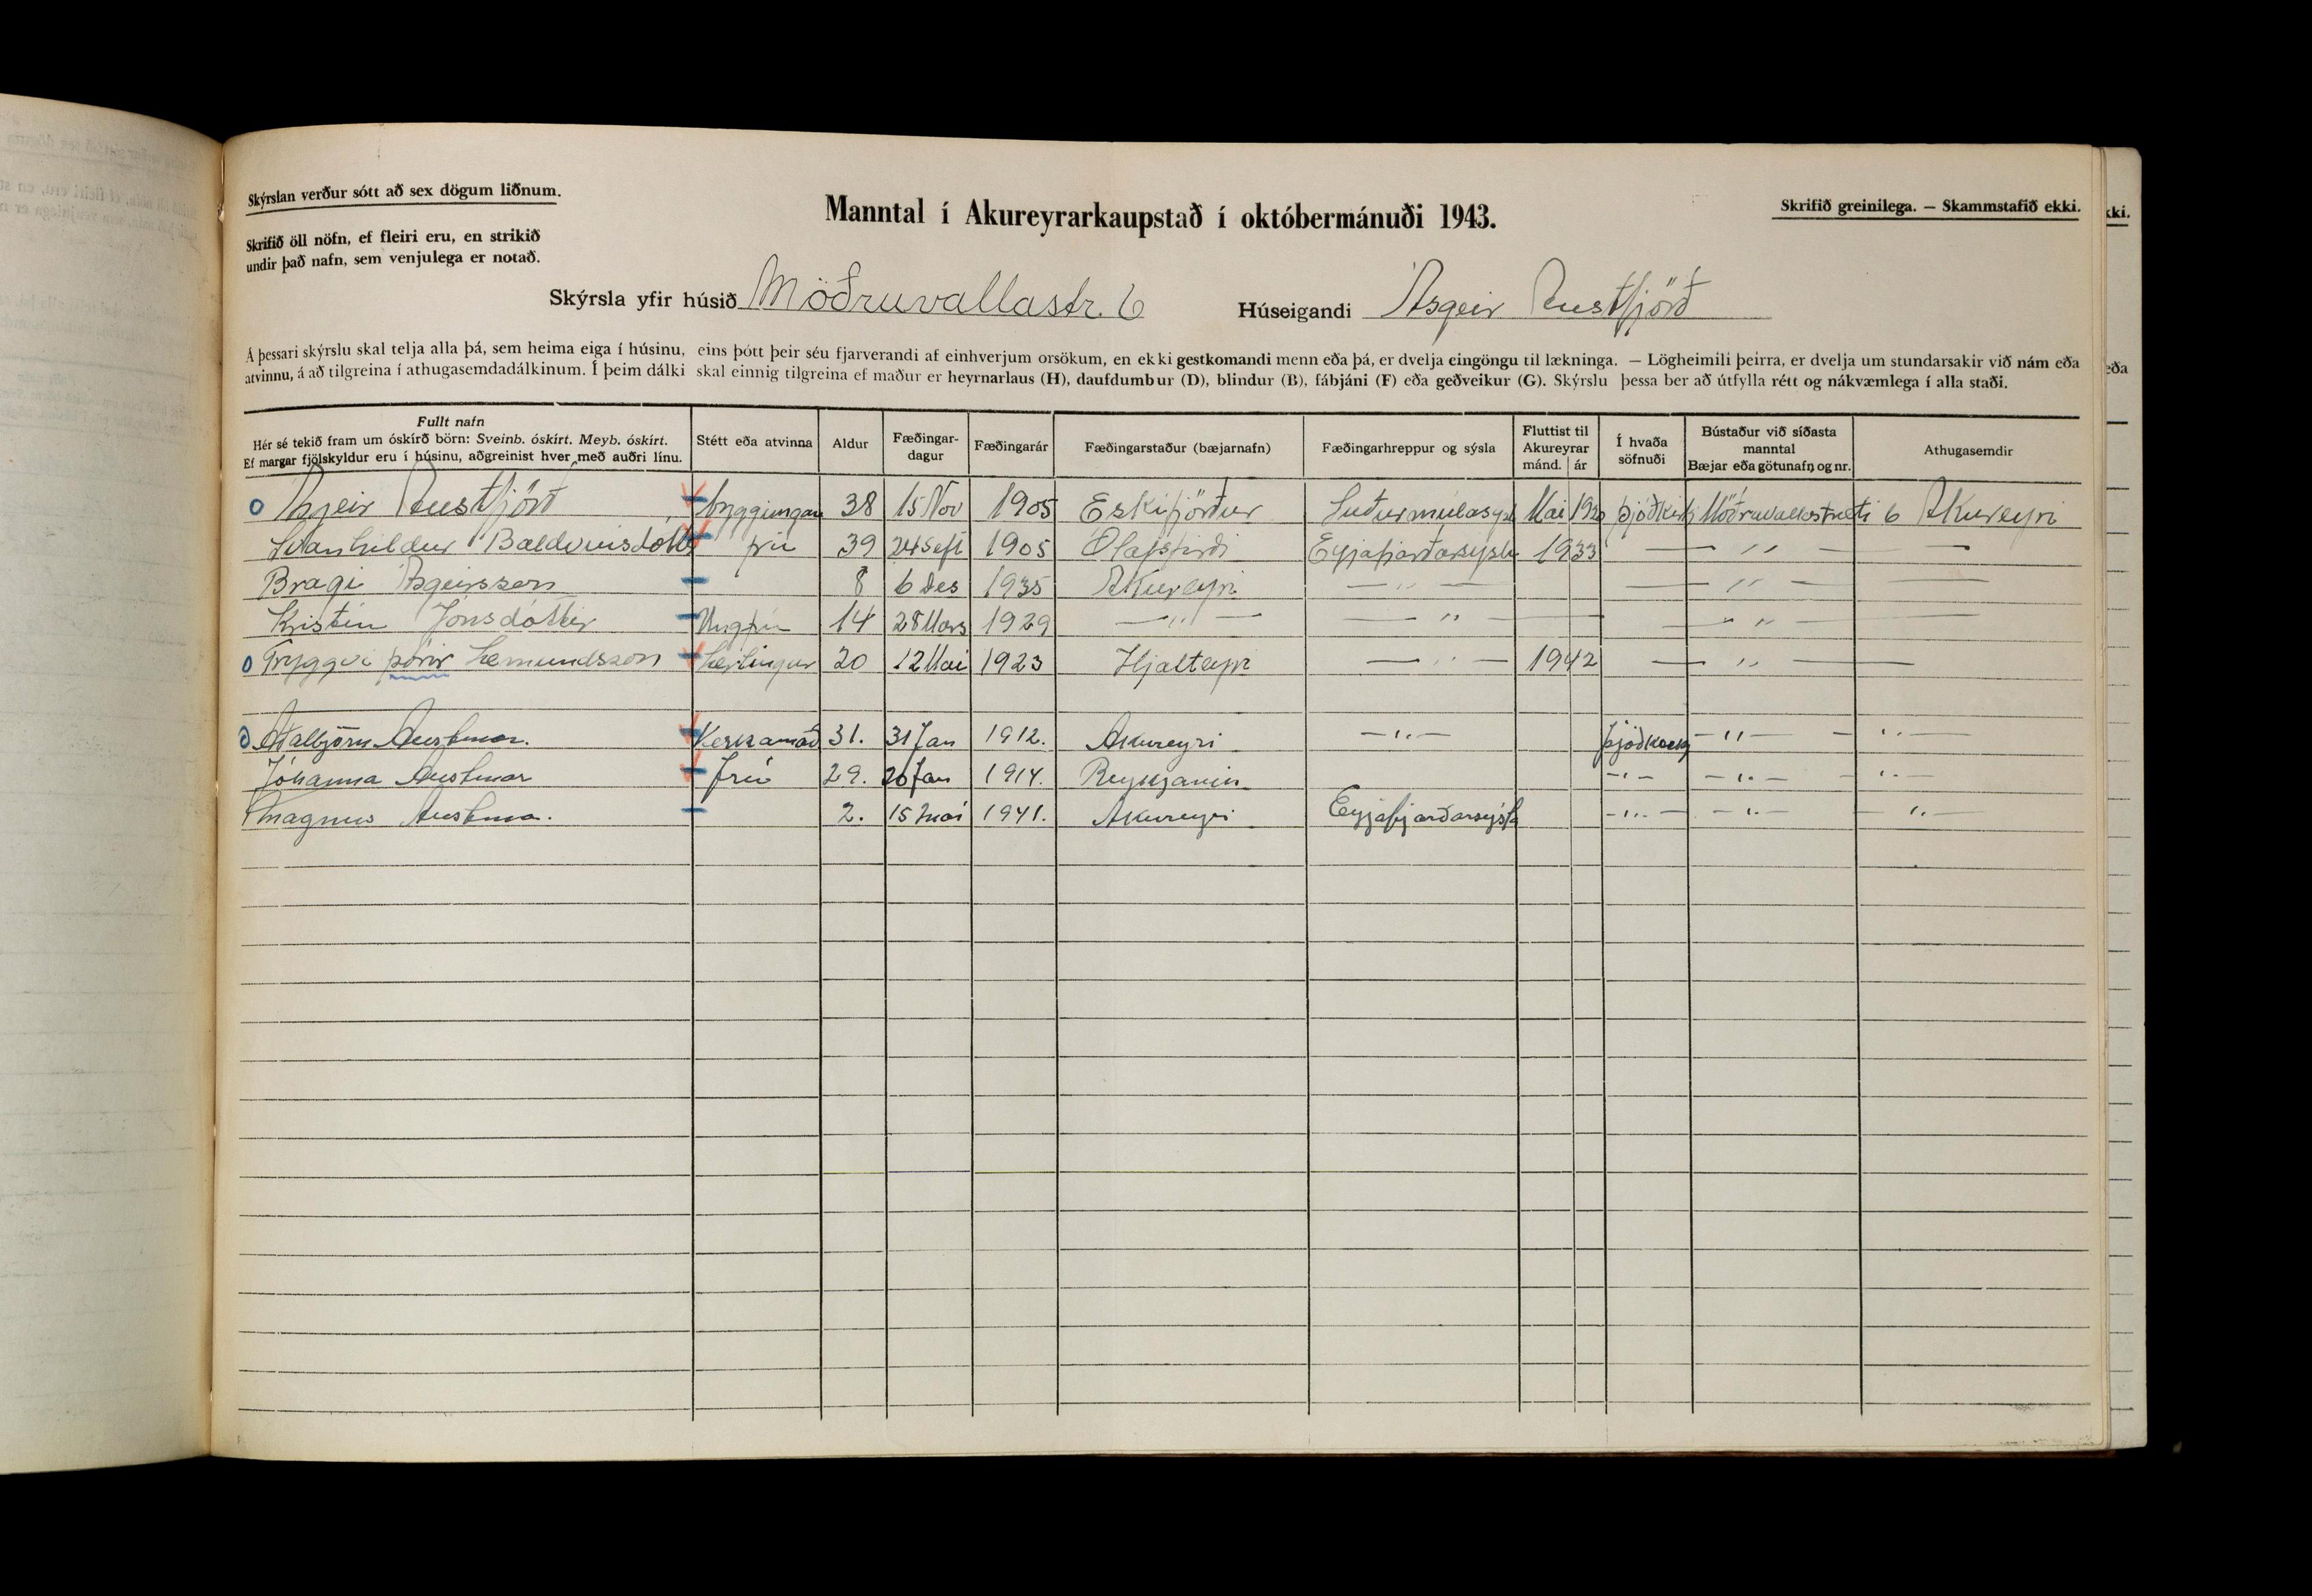 Skýrslan verður sótt að sex dögum liðnum.
Skrifið öll nöfn, ef fleiri eru, en strikið
undir það nafn, sem venjulega er notað.
Manntal í Akureyrarkaupstað í októbermánuði 1943.
Skrifið greinilega. — Skammstafið ekki.
kki.
Skýrsla yfir húsið Möðruvallastr. 6 Húseigandi Ásgeir Austfjörð
Á þessari skýrslu skal telja alla þá, sem heima eiga í húsinu, eins þótt þeir séu fjarverandi af einhverjum orsökum, en ekki gestkomandi menn eða þá, er dvelja eingöngu til lækninga. — Lögheimili þeirra, er dvelja um stundarsakir við nám eða
eða
atvinnu, á að tilgreina í athugasemdadálkinum. Í þeim dálki skal einnig tilgreina ef maður er heyrnarlaus (H), daufdumbur (D), blindur (B), fábjáni (F) eða geðveikur (G). Skýrslu þessa ber að útfylla rétt og nákvæmlega í alla staði.
Fullt nafn
Hér sé tekið fram um óskírð börn: Sveinb. óskírt. Meyb. óskírt.
Ef margar fjölskyldur eru í húsinu, aðgreinist hver með auðri línu.
Stétt eða atvinna
Aldur
Fæðingar-
dagur
Fæðingarár
Fæðingarstaður (bæjarnafn)
Fæðingarhreppur og sýsla
Fluttist til
Akureyrar
mánd. ár
Í hvaða
söfnuði
Bústaður við síðasta
manntal
Bæjar eða götunafn og nr.
Athugasemdir
o Ásgeir Austfjörð 38 15 Nov 1905 Eskifjörður Suðurmúlasýsl Mai Möðruvallastræti 6 Akureyri
Svanhildur Baldvinsdóttir frú 39 24 Sept 1905 Ólafsfirði Eyjafjarðarsýsla 1933 — " — —
Bragi Ásgeirsson 8 6 Des 1935 Akureyri — " — — " — —
Kristín Jónsdóttir Ungfrú 14 28 Mars 1929 — " — — " — — — " — —
o Tryggvi Þórir Lærlingur 20 12 Mai 1923 Hjalteyri — " — 1942 — " — —
o Aðalbjörn Austmar. 31. 31 Jan 1912. Akureyri — " — — " — " —
Jóhanna Austmar frú 29. 20 Jan 1914. — " — — " — " —
Magnus 2. 15 1941. Akureyri Eyjafjarðarsýsla — " — — " — " —